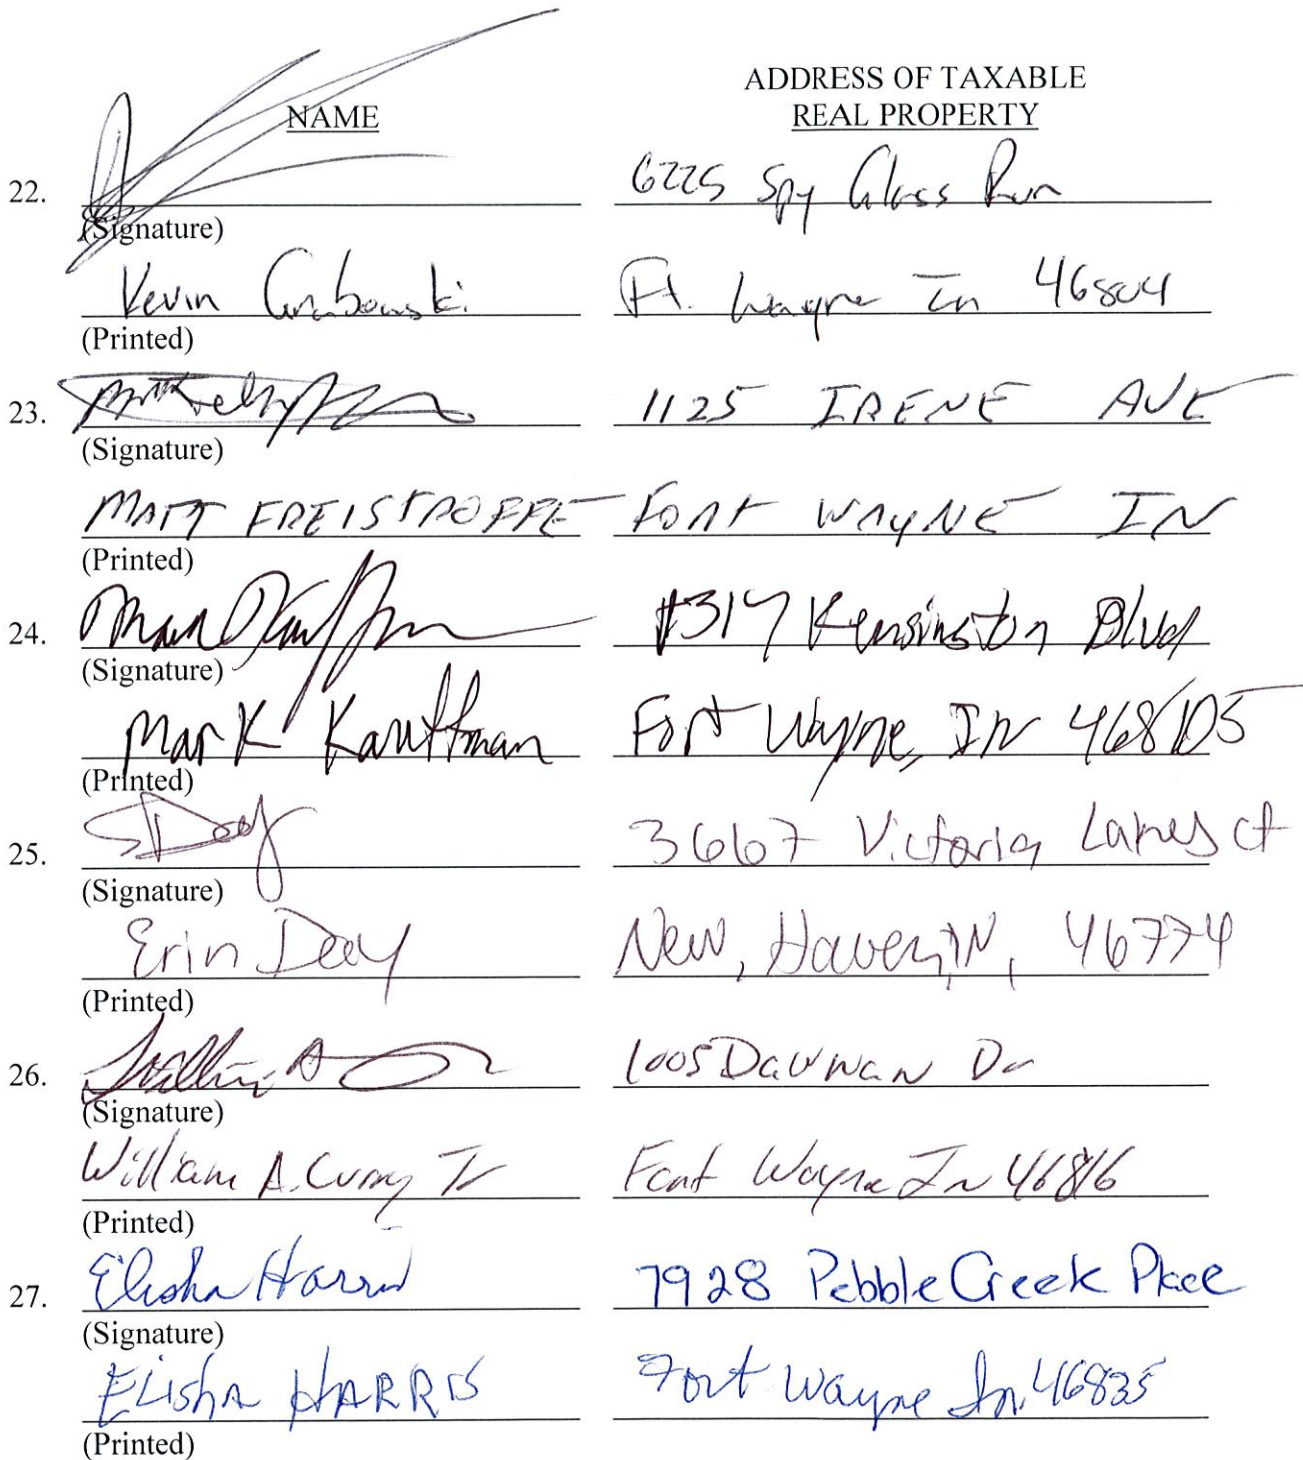 ADDRESS OF TAXABLE
NAME REAL PROPERTY
22. 6225 Spy Glass Run
(Signature)
Kevin Grabowski Ft. Wayne In 46804
(Printed)
23. 1125 IRENE AVE
(Signature)
MATT FREISTROFFE FORT WAYNE IN
(Printed)
24. Kensington Blvd
(Signature)
Mark Kauffman Fort Wayne, IN 46805
(Printed)
25. 3667 Victoria Lakes ct
(Signature)
Erin Deay New, Haven, IN, 46774
(Printed)
26. 1005 Dr
(Signature)
William A. Curry Jr Fort Wayne In 46816
(Printed)
27. Elisha Harris 7928 Pebble Creek Place
(Signature)
ELISHA HARRIS Fort Wayne In. 46835
(Printed)